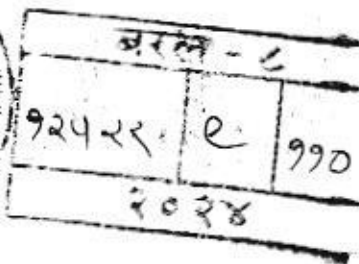 बरल - ९
१२५२२ ९ ११०
२०२४